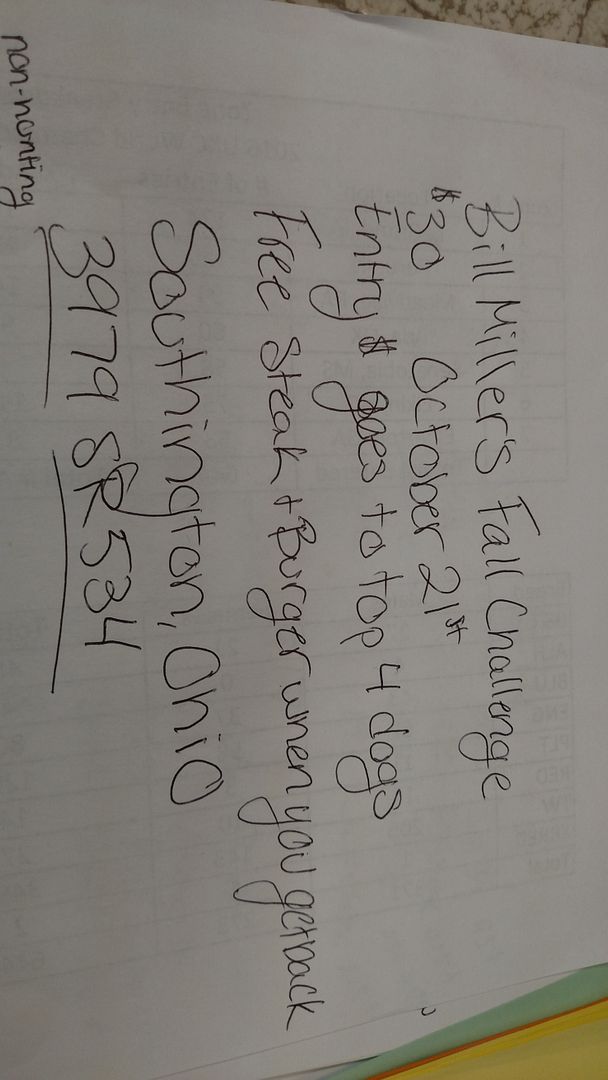 Bill Millers Fall Challenge
$30 October 21st
Entry $ goes to top 4 dogs
Free Steak + Burger when you getback
Southington, Ohio
3979 SR 534
non-hunting